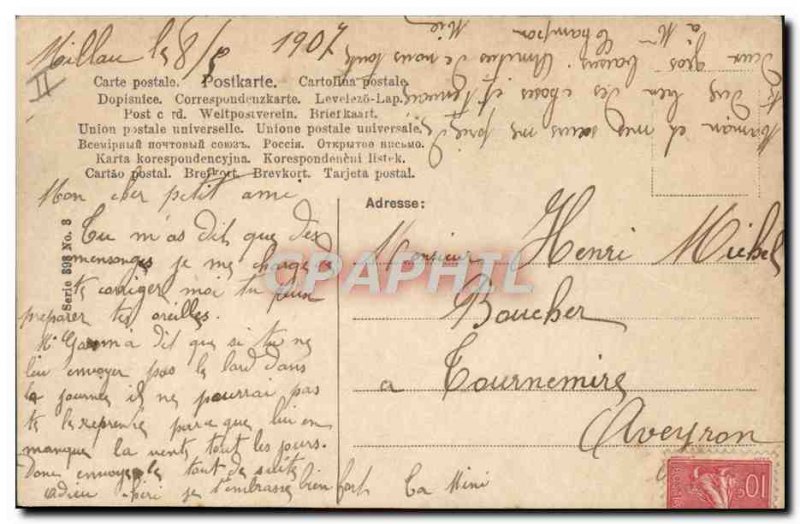 Millau le 8/9 1907
II
Carte postale. Postkarte. Cartolina postale.
Dopisnice. Correspondenzkarte. Levelező-Lap.
Post c rd. Weltpostverein. Briefkaart.
Union postale universelle. Unione postale universale.
Всемірный почтовый союзъ. Россія. Открытое письмо.
Karta korespondencyjna. Korespondenční listek.
Cartão postal. Brefkort. Brevkort. Tarjeta postal.
Serie 898 No. 3
Mon cher petit ami
Tu m'as dit que des
mensonges je me charge de
te corriger moi tu peux
preparer tes oreilles.
Mr dit que si tu ne
lui envoyer pas le lard dans
la journée il ne pourrai pas
te le reprendre para que lui en
manque la vente tout les jours.
Donc envoye le tout de suite
adieu je t'embrasse bien fort La Mini
Adresse:
Monsieur Henri Michel
Boucher
a Tournemire
Aveyron
Maman et mes sœurs me prie de
te dire bien des choses et t'envoie
Deux gros baisers. Amities de nous tous
à Mme Champion
Mie
CPAPHIL
10